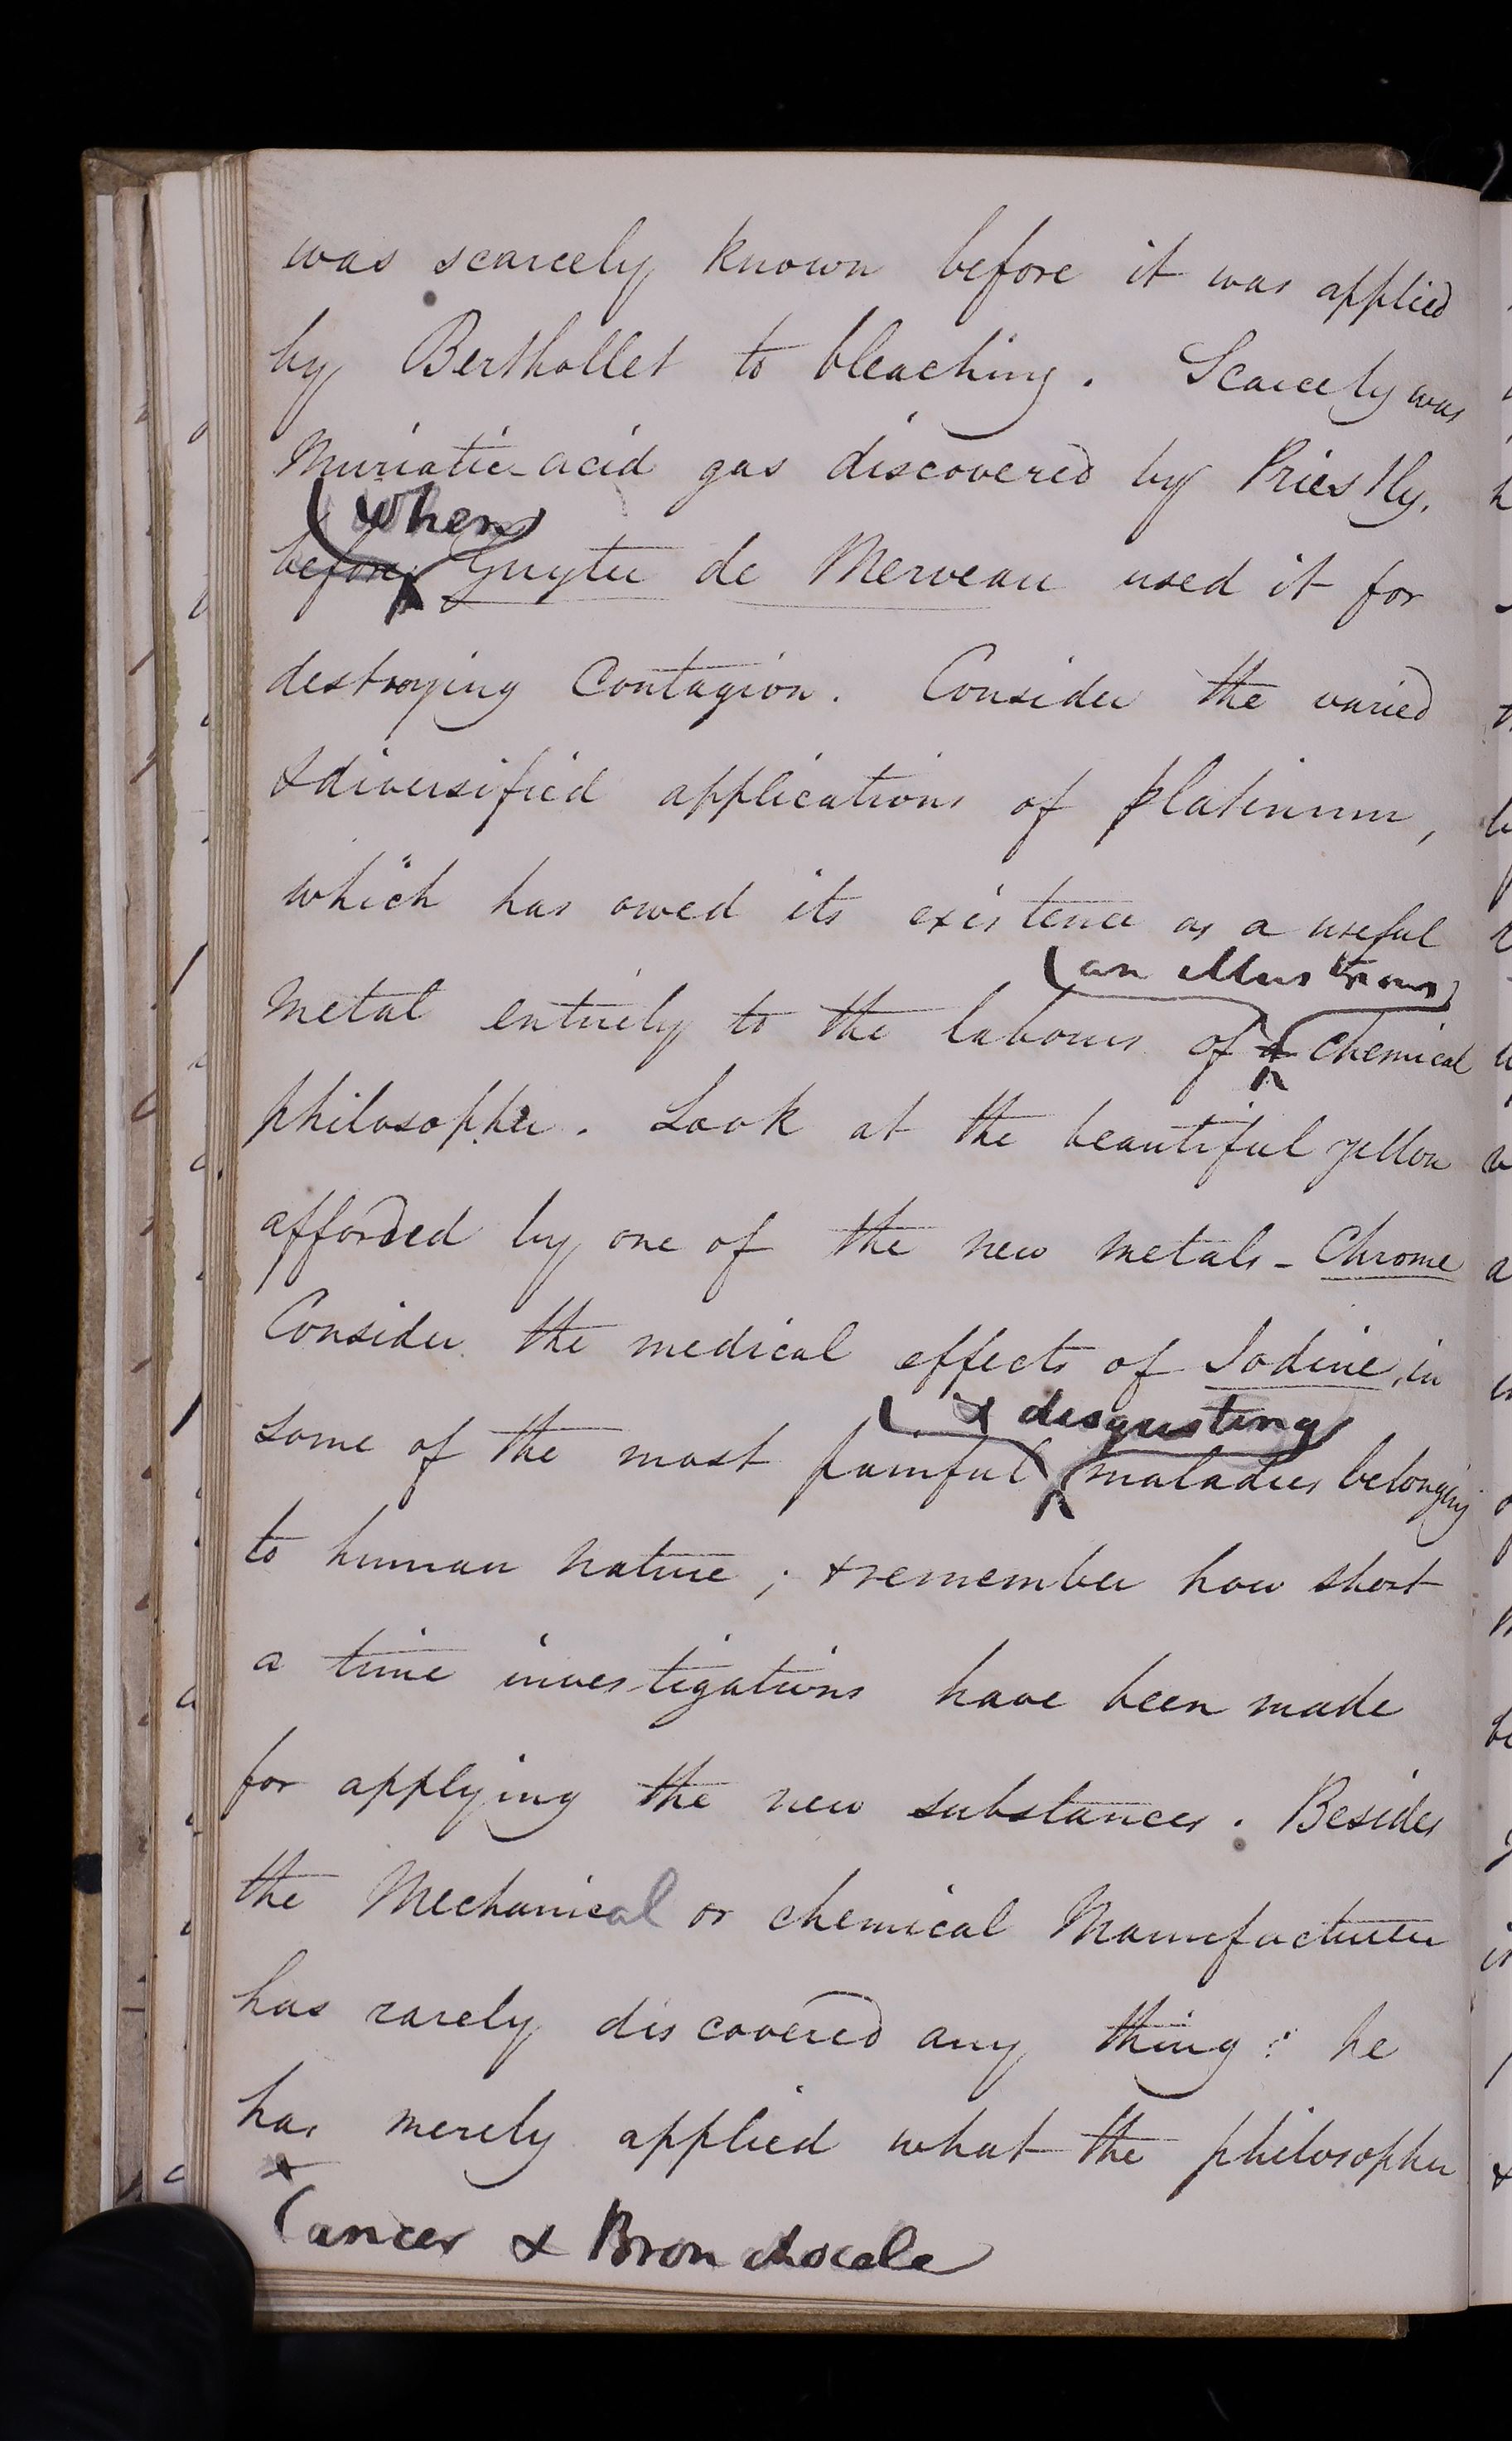 was scarcely known before it was applied
by Berthollet to bleaching. Scarcely was
Muriatic-acid gas discovered by Priestly,
when
before Guyter de Merveau used it for
destroying Contagion. Consider the varied
& diversified applications of platinum,
which has owed its existence as a useful
an illustrious
metal entirely to the labours of a chemical
philosopher. Look at the beautiful yellow
afforded by one of the new metals - Chrome
Consider the medical effects of Iodine, in
& disgusting
some of the most painful maladies belonging
to human nature; & remember how short
a time investigations have been made
for applying the new substances. Besides
the Mechanical or chemical Manufacturer
has rarely discovered any thing: he
has merely applied what the philosopher
x
Cancer & Bronchocele